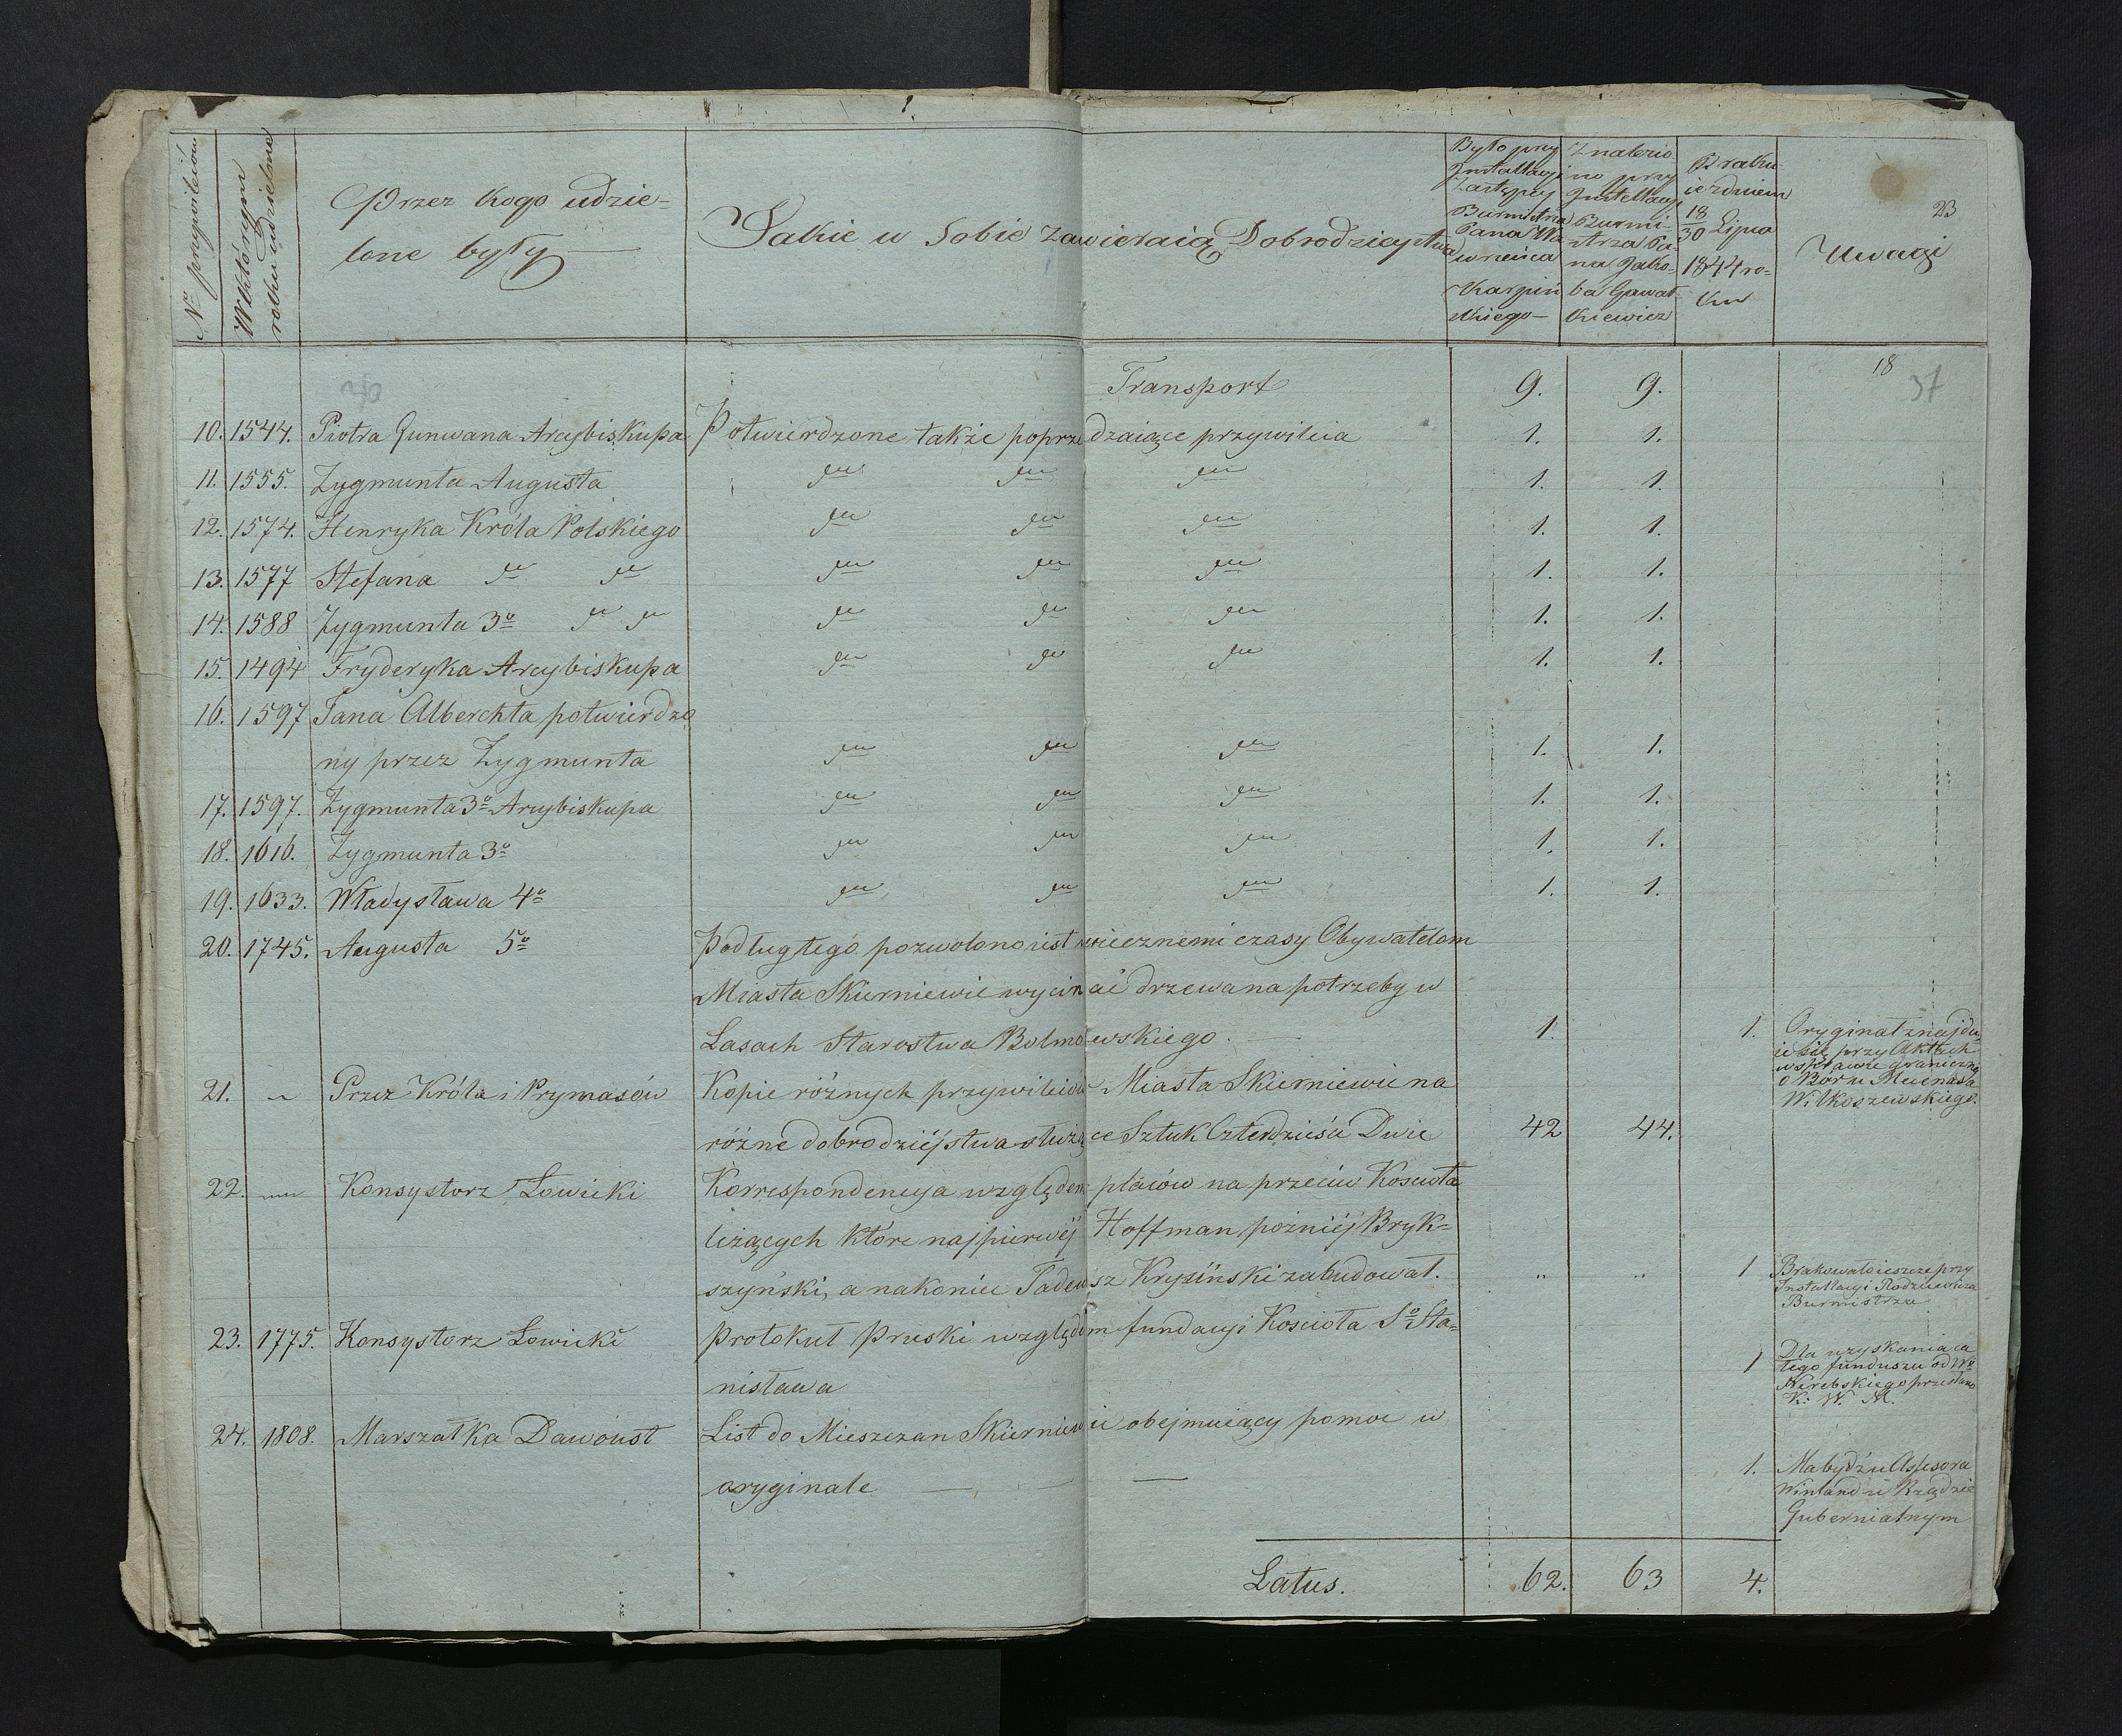 23
Nr przywileiów
W którym roku udzielone
Przez kogo udzie-
lone były
Jakie w Sobie zawieraią Dobrodzieystwa
Było przy
Instalacyi
Zastępcy
Burmistrza
Pana Wa
wrzeńca
Karpiń
skiego
Znalezio
no przy
Instellacyi
Burmi-
strza Pa-
na Jako-
ba Gawat-
kiewicz
Braku
ie z dniem
18/30 Lipca
1844 ro-
ku
Uwagi
Transport 9. 9. 18 37
10. 1544. Piotra Gunwana Arcybiskupa Potwierdzone także poprzedzaiące przywileia 1. 1.
11. 1555. Zygmunta Augusta dtto dtto dtto 1. 1.
12. 1574. Henryka Króla Polskiego dtto dtto dtto 1. 1.
13. 1577 Stefana dtto dtto dtto dtto dtto 1. 1.
14. 1588 Zygmunta 3o dtto dtto dtto dtto dtto 1. 1.
15. 1494 Fryderyka Arcybiskupa dtto dtto dtto 1. 1.
16. 1597 Jana Alberchta potwierdzo
ny przez Zygmunta dtto dtto dtto 1. 1.
17. 1597. Zygmunta 3o Arcybiskupa dtto dtto dtto 1. 1.
18. 1616. Zygmunta 3o dtto dtto dtto 1. 1.
19. 1633. Władysława 4o dtto dtto dtto 1. 1.
20. 1745. Augusta 5o Podług tego pozwolono iest wiecznemi czasy Obywatelom
Miasta Skierniewic wycinać drzewa na potrzeby w
Lasach Starostwa Bolmowskiego. 1. 1. Oryginał znajdu
ie się przy Aktach
w sprawie graniczney
o Bór u Mecenasa
Wilkoszewskiego.
21. „ Przez Króla i Prymasów Kopie różnych przywileiów Miasta Skierniewic na
różne dobrodziéjstwa służące Sztuk Czterdzieści Dwie 42 44.
22. „ Konsystorz Łowicki Korrespondencya względem placów na przeciw Kościoła
leżących które najpierwéj Hoffman, poźniéj Bryk=
szyński, a nakoniec Tadeusz Krysiński zabudował. „ „ 1 Brakowało ieszcze przy
Instalacyi Rodziewicza
Burmistrza.
23. 1775. Konsystorz Łowicki Protokuł Pruski względem fundacyi Kościoła So Sta=
nisława 1 Dla uzyskania ca
łego funduszu od Wo
Skrebskiego przesłano
K. W. M.
24. 1808. Marszałka Dawoust List do Mieszczan Skierniewic obejmuiący pomoc w
oryginale 1. Ma bydź u Assesora
Winland w Rządzie
Gubernialnym
Latus. 62. 63 4.